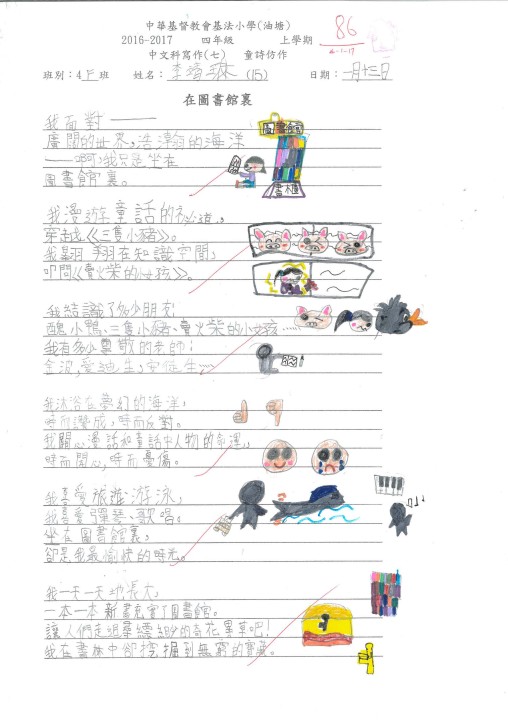 中華基督教會基法小學(油塘)
2016-2017 四年級 上學期
中文科寫作(七) 童詩仿作
86
4-1-17
班別:4F班 姓名:李靖 (15) 日期:一月十三日
在圖書館裏
我面對——
廣闊的世界,浩瀚的海洋
——啊,我只是坐在
圖書館裏。
圖書館
書櫃
我漫遊童話的
穿越《三隻小豬》。
我翱翔在知識空間,
叩問《賣火柴的小女孩》。
我結識了多少朋友:
醜小鴨、三隻小豬、賣火柴的小女孩……
我有多少尊敬的老師:
金波,愛迪生,安徒生……
我沐浴在夢幻的海洋,
時而讚成,時而反對。
我關心漫話和童話中人物的命運,
時而開心,時而憂傷。
我喜愛旅遊游泳,
我喜愛彈琴歌唱。
坐在圖書館裏,
卻是我最愉快的時光。
我一天一天地長大,
一本一本新書充實了圖書館。
讓人們走過 縹緲的奇花異草吧!
我在書林中卻挖掘到無窮的寶藏。